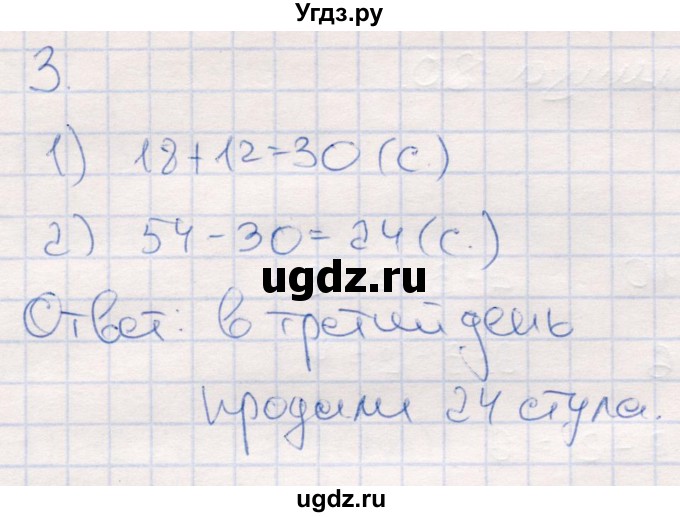 Угдз.ру
3.
1) 18+12=30 (с.)
ugdz.ru
2) 54-30=24 (с.)
ugdz.ru
Ответ: в третий день
продали 24 стула.
ugdz.ru